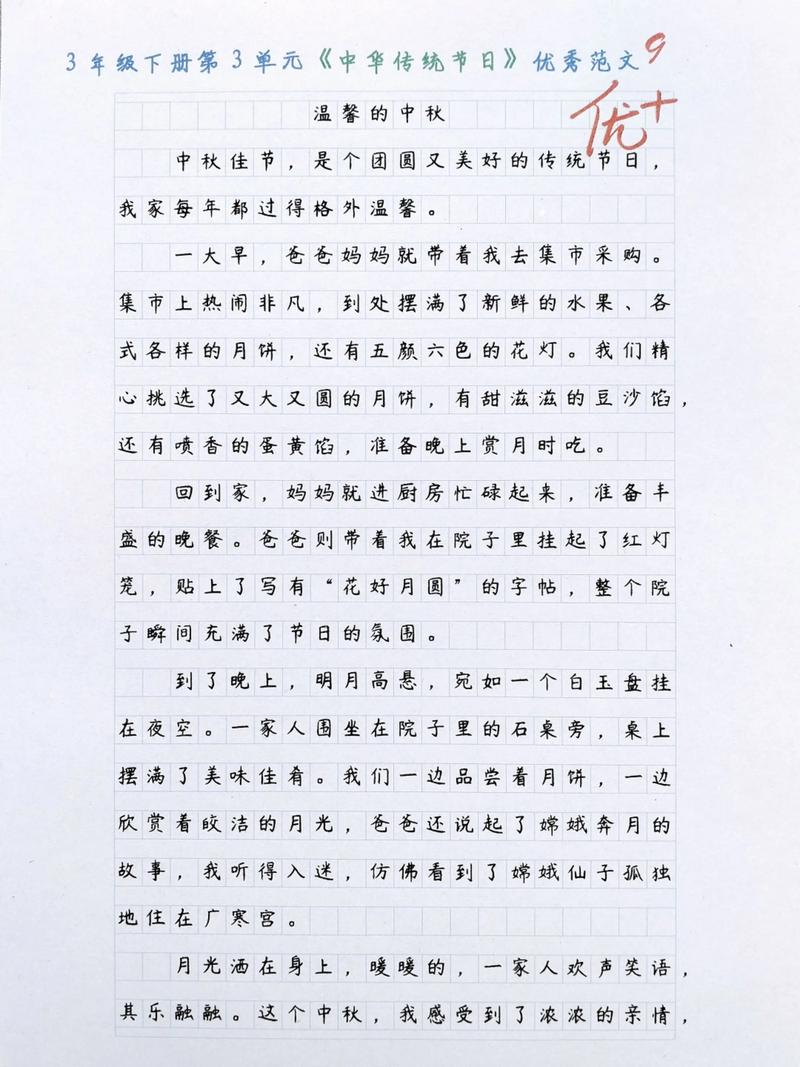 3年级下册第3单元《中华传统节日》优秀范文9
温馨的中秋
优+
中秋佳节，是个团圆又美好的传统节日，
我家每年都过得格外温馨。
一大早，爸爸妈妈就带着我去集市采购。
集市上热闹非凡，到处摆满了新鲜的水果、各
式各样的月饼，还有五颜六色的花灯。我们精
心挑选了又大又圆的月饼，有甜滋滋的豆沙馅，
还有喷香的蛋黄馅，准备晚上赏月时吃。
回到家，妈妈就进厨房忙碌起来，准备丰
盛的晚餐。爸爸则带着我在院子里挂起了红灯
笼，贴上了写有“花好月圆”的字帖，整个院
子瞬间充满了节日的氛围。
到了晚上，明月高悬，宛如一个白玉盘挂
在夜空。一家人围坐在院子里的石桌旁，桌上
摆满了美味佳肴。我们一边品尝着月饼，一边
欣赏着皎洁的月光，爸爸还说起了嫦娥奔月的
故事，我听得入迷，仿佛看到了嫦娥仙子孤独
地住在广寒宫。
月光洒在身上，暖暖的，一家人欢声笑语，
其乐融融。这个中秋，我感受到了浓浓的亲情，